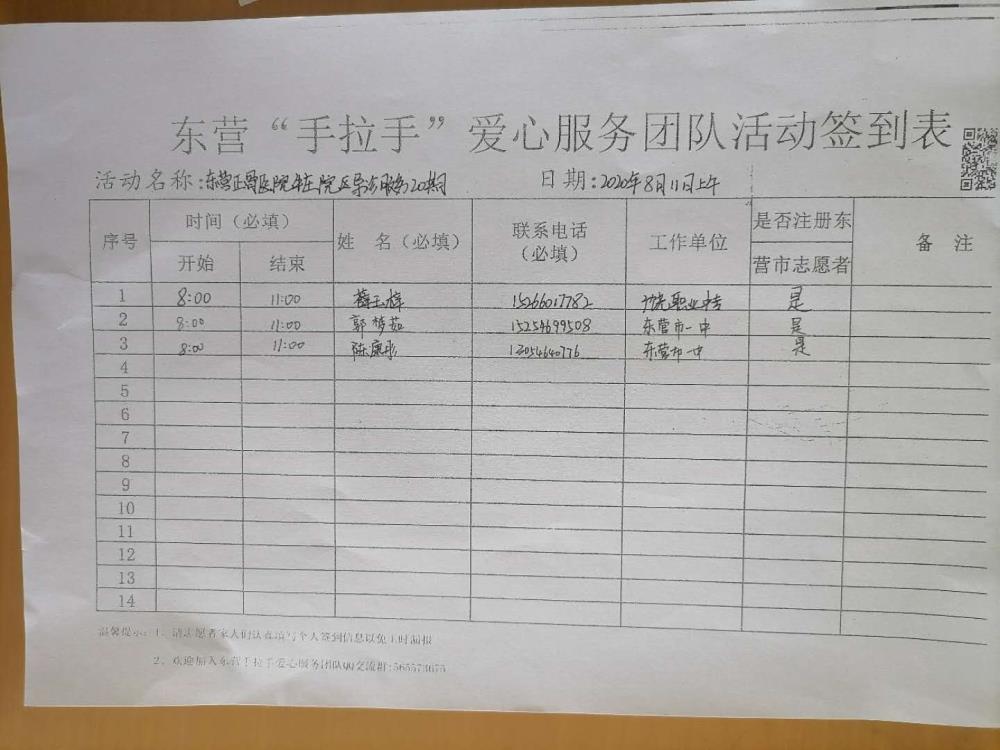 东营“手拉手”爱心服务团队活动签到表
活动名称:东营正骨医院东院区导诊服务20期 日期:2020年8月11日上午
序号 时间（必填） 姓 名（必填） 联系电话（必填） 工作单位 是否注册东营市志愿者 备 注
开始 结束
1 8:00 11:00 15266017782 职业中专 是
2 8:00 11:00 郭梦茹 15254699508 东营市一中 是
3 8:00 11:00 陈康彤 13054640776 东营市一中 是
4
5
6
7
8
9
10
11
12
13
14
温馨提示:1、请志愿者家人们认真填写个人签到信息以免工时漏报
2、欢迎加入东营手拉手爱心服务团队QQ交流群:565573675